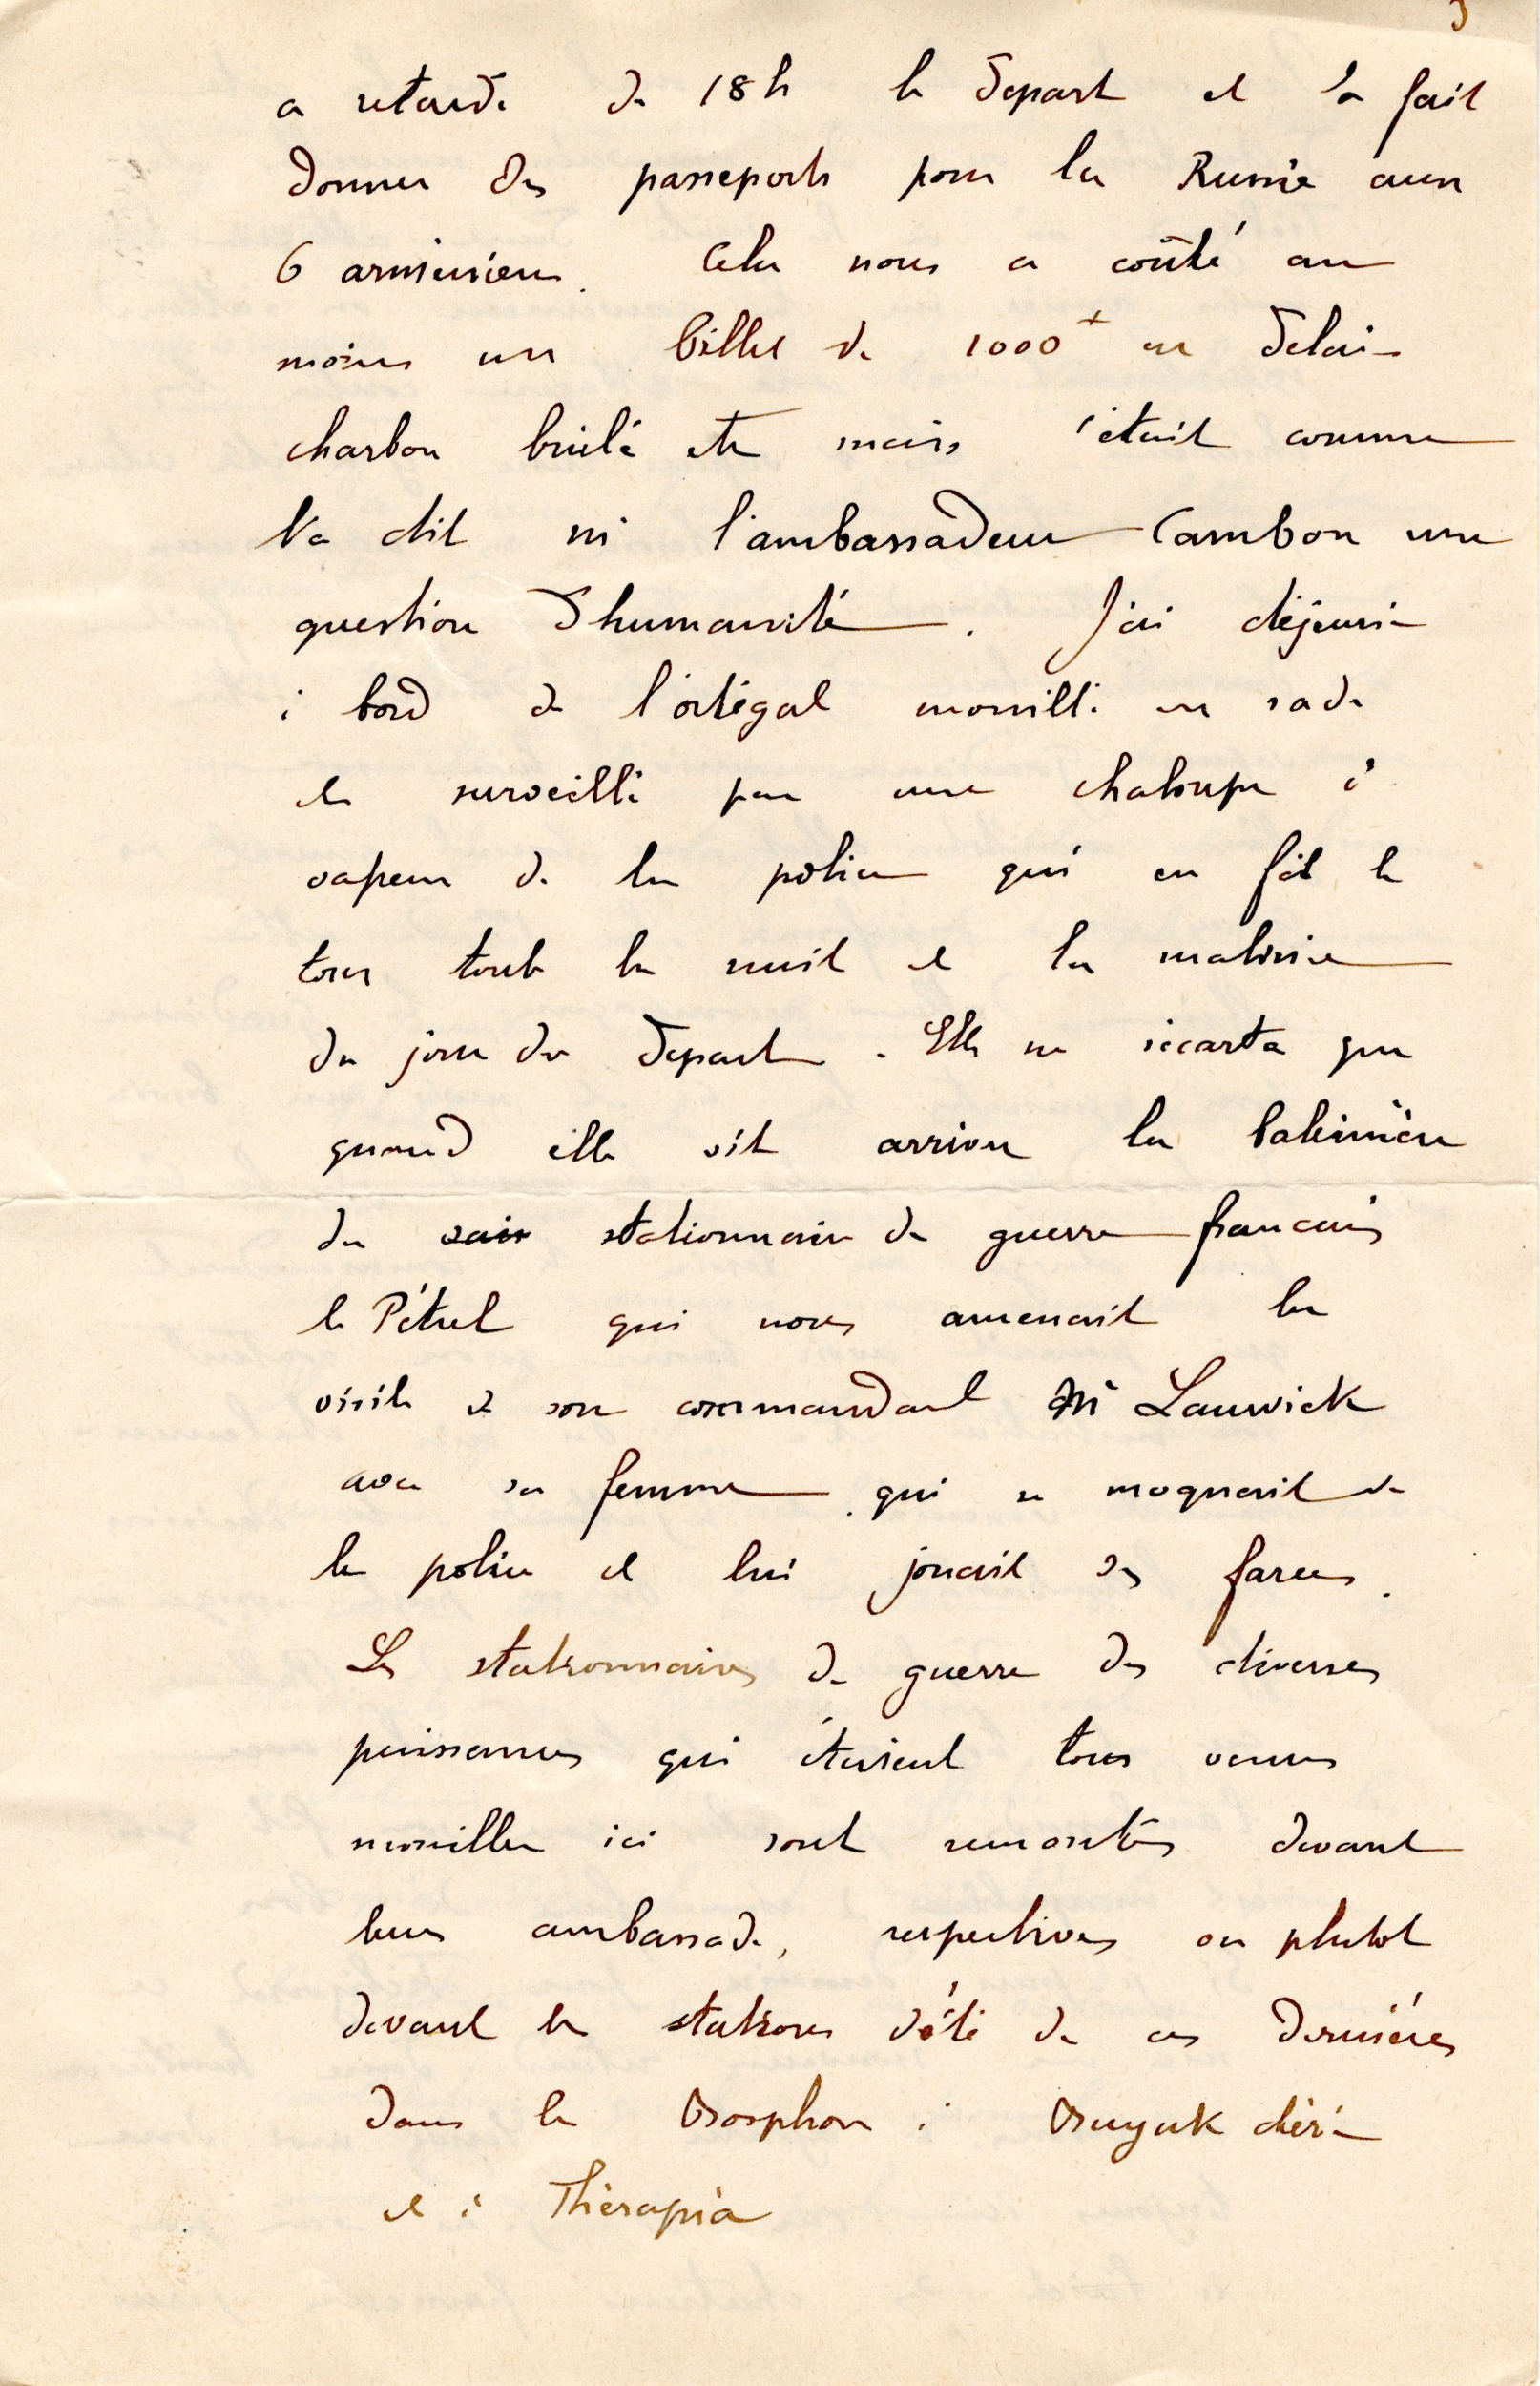 3
a retardé de 18h le depart et l'a fait
donner des passeports pour la Russie aux
6 arméniens. Cela nous a coûté au
moins un billet de 1000 en delais
charbon brûlé etc mais c'était comme
l'a dit l'ambassadeur Cambon une
question d'humanité. J'ai déjeuné
à bord de l'ortégal mouillé en rade
et surveillé par une chaloupe à
vapeur de la police qui en fit le
tour toute la nuit et la matinée
du jour du depart. Elle ne s'écarta que
quand elle vit arriver la baleinière
du stationnaire de guerre francais
le Pétrel qui nous amenait la
visite de son commandant Mr Lauwick
avec sa femme qui se moquait de
la police et lui jouait des farces.
Les stationnaires de guerre des diverses
puissances qui étaient tous venus
mouiller ici sont remontés devant
leurs ambassades, respectives ou plutot
devant les stations d'été de ces dernières
dans le Bosphore à Buyuk déré
et à Thérapia